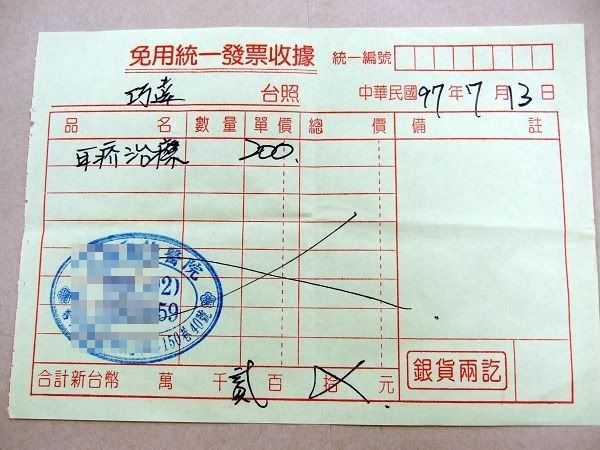 免用統一發票收據 統一編號
巧 台照 中華民國97年7月13日
品名 數量 單價 總價 備註
耳疥治療 200.
醫院
02)
59
150巷40號
合計新台幣 萬 千 貳 百 拾 元
銀貨兩訖